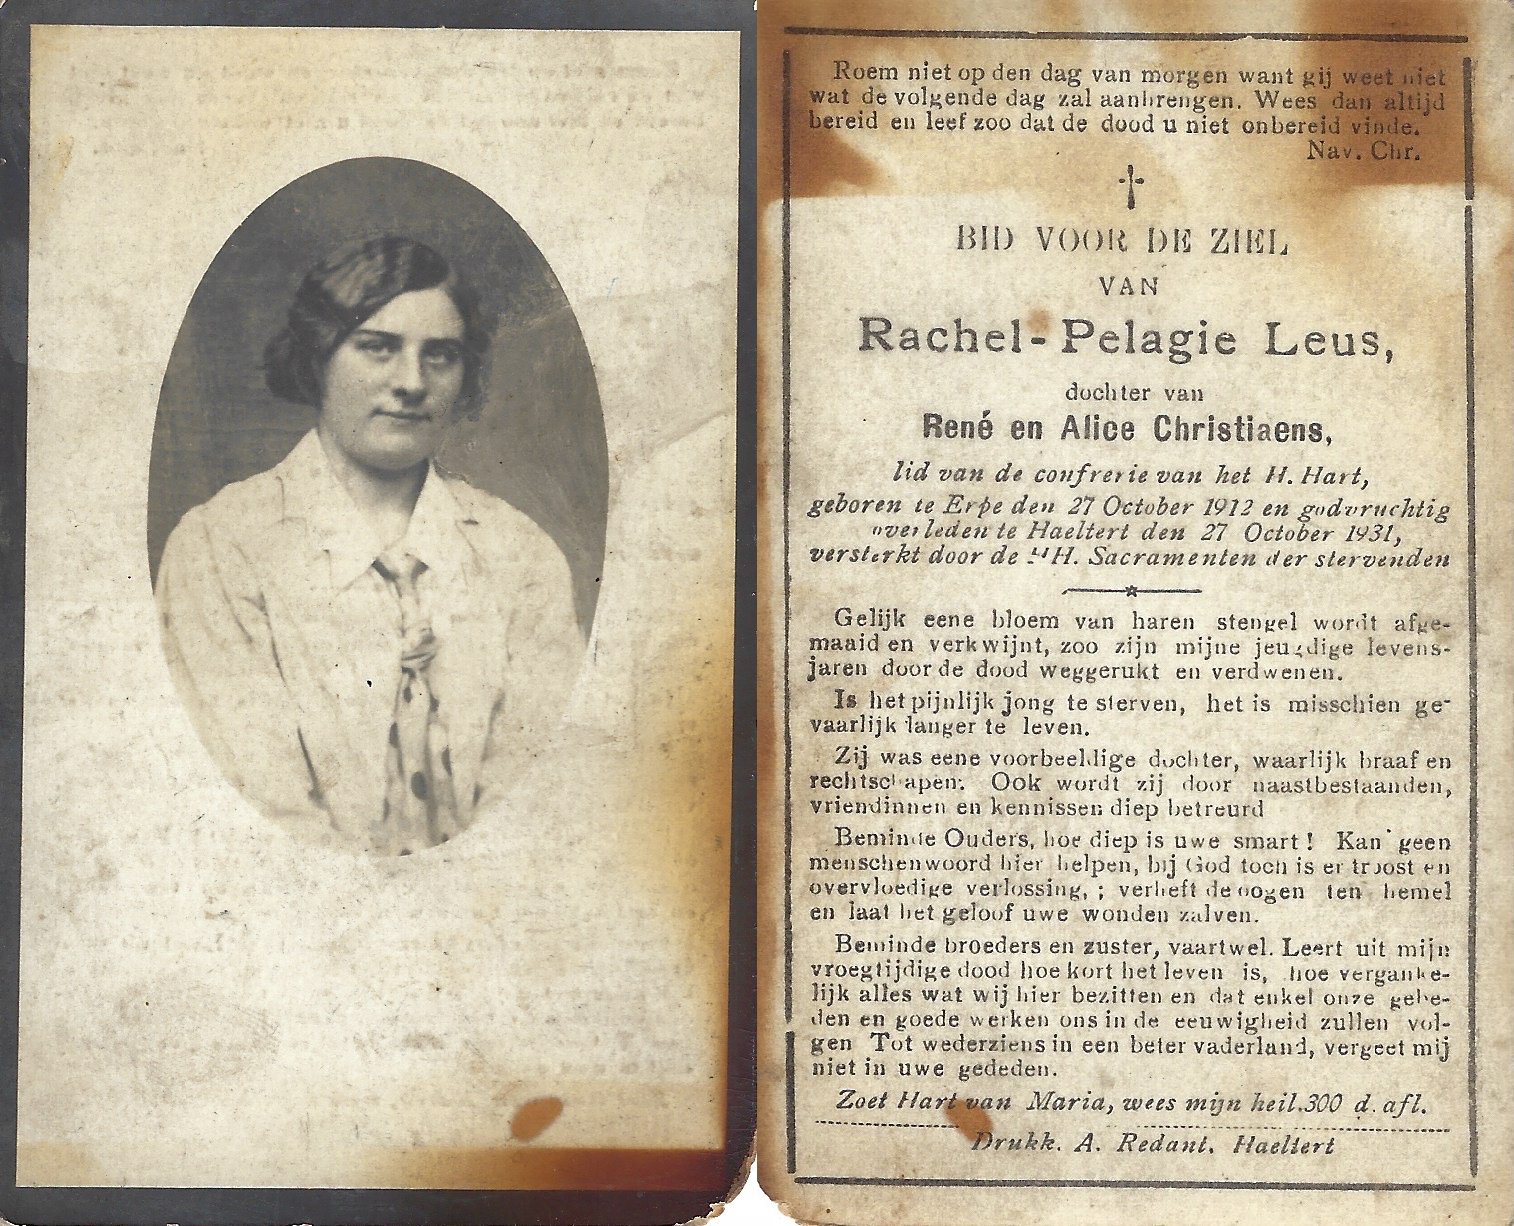 Roem niet op den dag van morgen want gij weet niet
wat de volgende dag zal aanbrengen. Wees dan altijd
bereid en leef zoo dat de dood u niet onbereid vinde.
Nav. Chr.
BID VOOR DE ZIEL
VAN
Rachel-Pelagie Leus,
dochter van
René en Alice Christiaens,
lid van de confrerie van het H. Hart,
geboren te Erpe den 27 October 1912 en godvruchtig
overleden te Haeltert den 27 October 1931,
versterkt door de HH. Sacramenten der stervenden
Gelijk eene bloem van haren stengel wordt afge-
maaid en verkwijnt, zoo zijn mijne jeugdige levens-
jaren door de dood weggerukt en verdwenen.
Is het pijnlijk jong te sterven, het is misschien ge-
vaarlijk langer te leven.
Zij was eene voorbeeldige dochter, waarlijk braaf en
rechtschapen. Ook wordt zij door naastbestaanden,
vriendinnen en kennissen diep betreurd
Beminde Ouders, hoe diep is uwe smart ! Kan geen
menschenwoord hier helpen, bij God toch is er troost en
overvloedige verlossing, ; verheft de oogen ten hemel
en laat het geloof uwe wonden zalven.
Beminde broeders en zuster, vaartwel. Leert uit mijn
vroegtijdige dood hoe kort het leven is, hoe verganke-
lijk alles wat wij hier bezitten en dat enkel onze gebe-
den en goede werken ons in de eeuwigheid zullen vol-
gen Tot wederziens in een beter vaderland, vergeet mij
niet in uwe gededen.
Zoet Hart van Maria, wees mijn heil. 300 d. afl.
Drukk. A. Redant. Haeltert